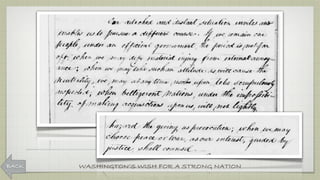 Our detached and distant situation invites and
enables us to pursue a different course. If we remain one
people, under an efficient government, the period is not far
off, when we may defy material injury from external annoy-
ance; when we may take such an attitude as will cause the
neutrality, we may at any time resolve upon to be scrupulously
respected; when belligerent nations, under the impossibi-
lity of making acquisitions upon us, will not lightly
hazard the giving us provocation; when we may
choose peace or war, as our interest, guided by
justice shall counsel.
BACK
WASHINGTON'S WISH FOR A STRONG NATION